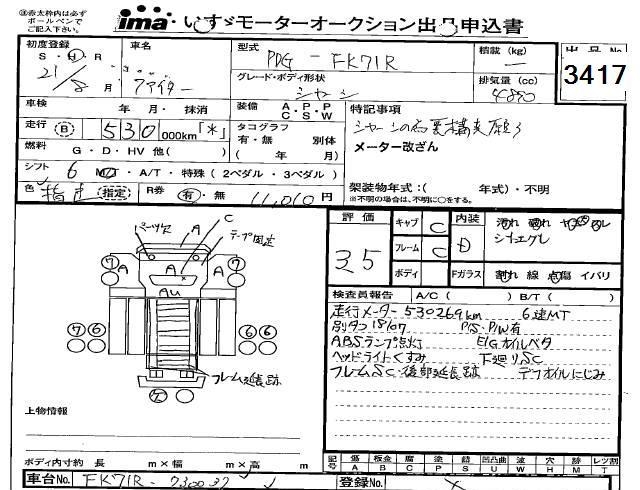 ㊟赤太枠内は必ず
ボールペンで
ご記入下さい。
ima いすゞモーターオークション出品申込書
初度登録 車名 型式 PDG - FK71R 積載 (kg) 出品No
S・H・R
21/8月 ファイター
グレード・ボディ形状
シャーシ
排気量 (cc)
4890
3417
車検 年 月・抹消
装備 A・P・P C・S・W
特記事項
走行 B 530 000km「*」
タコグラフ
有・無 別体
( 年 月)
メーター改ざん
燃料 G・D・HV 他( )
シフト 6 M/T・A/T・特殊 (2ペダル・3ペダル)
架装物年式:( 年式)・不明
※不明の場合は、不明に○をする。
色 指定 (指定) R券 有・無 11,010 円
評価 キャブ C 内装
35 フレーム C D シナエグレ
ボディ Fガラス 割れ 線 点傷 イバリ
パーツ欠 A C テープ固定
⑦ A A A ⑦
Au
⑦ ⑥ ⑥ ⑥
フレーム延長跡
検査員報告 A/C ( ) B/T ( )
走行メーター 530269km 6速MT
別タコ 18/07 P/S・P/W有
ABSランプ点灯 E/Gオイルベタ
ヘッドライトくすみ 下廻りSC
フレームSC・後部延長跡 デフオイルにじみ
上物情報
ボディ内寸約 長 m×幅 m×高 m
記号 A B C P S U W H X T
車台No. FK71R - 730037
登録No.